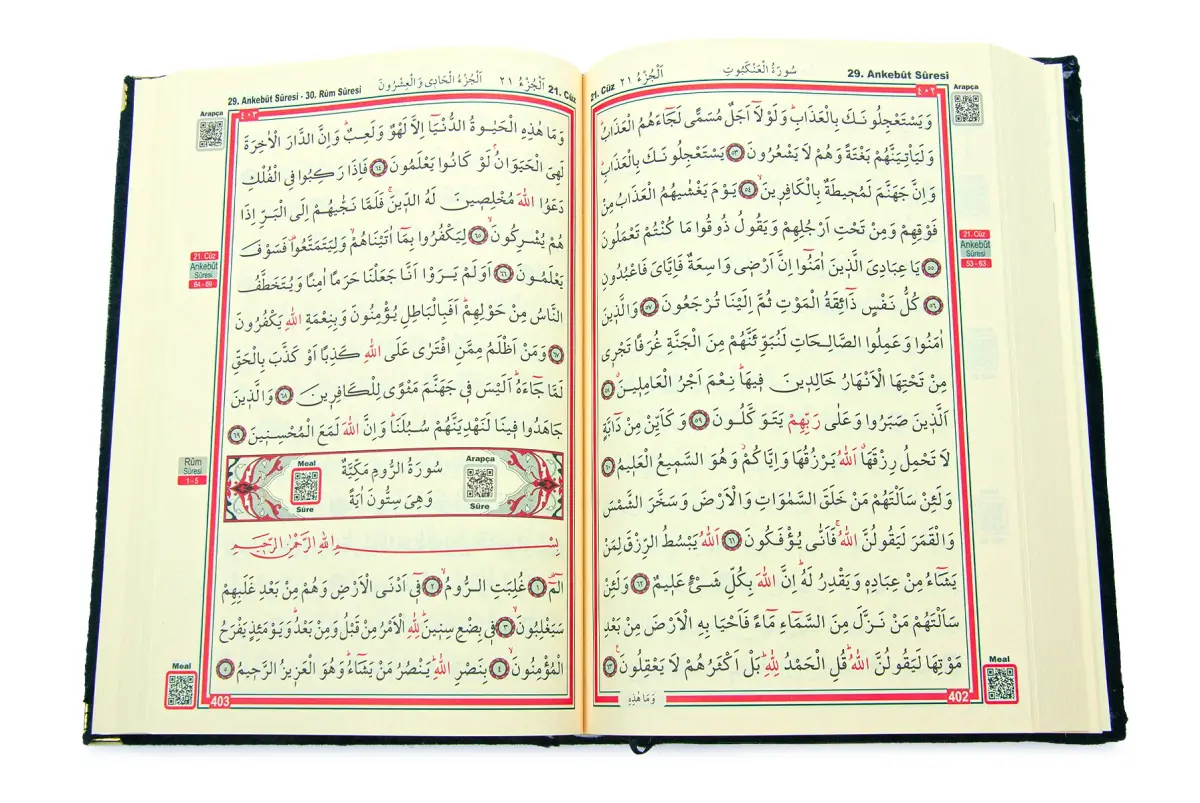 29. Ankebût Sûresi
سُورَةُ الْعَنْكَبُوتِ
اَلْجُزْءُ ٢١
21. Cüz
٤٠٢
Arapça
وَيَسْتَعْجِلُونَكَ بِالْعَذَابِۜ وَلَوْلَٓا اَجَلٌ مُسَمًّى لَجَٓاءَهُمُ الْعَذَابُۜ
وَلَيَأْتِيَنَّهُمْ بَغْتَةً وَهُمْ لَا يَشْعُرُونَ ﴿٥٣﴾ يَسْتَعْجِلُونَكَ بِالْعَذَابِۜ
وَاِنَّ جَهَنَّمَ لَمُحٖيطَةٌ بِالْكَافِرٖينَۙ ﴿٥٤﴾ يَوْمَ يَغْشٰيهُمُ الْعَذَابُ مِنْ
فَوْقِهِمْ وَمِنْ تَحْتِ اَرْجُلِهِمْ وَيَقُولُ ذُوقُوا مَا كُنْتُمْ تَعْمَلُونَ
﴿٥٥﴾ يَا عِبَادِيَ الَّذٖينَ اٰمَنُٓوا اِنَّ اَرْضٖي وَاسِعَةٌ فَاِيَّايَ فَاعْبُدُونِ
﴿٥٦﴾ كُلُّ نَفْسٍ ذَٓائِقَةُ الْمَوْتِ ثُمَّ اِلَيْنَا تُرْجَعُونَ ﴿٥٧﴾ وَالَّذٖينَ
اٰمَنُوا وَعَمِلُوا الصَّالِحَاتِ لَنُبَوِّئَنَّهُمْ مِنَ الْجَنَّةِ غُرَفًا تَجْرٖي
مِنْ تَحْتِهَا الْاَنْهَارُ خَالِدٖينَ فٖيهَاۜ نِعْمَ اَجْرُ الْعَامِلٖينَۗ ﴿٥٨﴾
اَلَّذٖينَ صَبَرُوا وَعَلٰى رَبِّهِمْ يَتَوَكَّلُونَ ﴿٥٩﴾ وَكَاَيِّنْ مِنْ دَٓابَّةٍ
لَا تَحْمِلُ رِزْقَهَاۗ اَللّٰهُ يَرْزُقُهَا وَاِيَّاكُمْۘ وَهُوَ السَّمٖيعُ الْعَلٖيمُ ﴿٦٠﴾
وَلَئِنْ سَاَلْتَهُمْ مَنْ خَلَقَ السَّمٰوَاتِ وَالْاَرْضَ وَسَخَّرَ الشَّمْسَ
وَالْقَمَرَ لَيَقُولُنَّ اللّٰهُۚ فَاَنّٰى يُؤْفَكُونَ ﴿٦١﴾ اَللّٰهُ يَبْسُطُ الرِّزْقَ لِمَنْ
يَشَٓاءُ مِنْ عِبَادِهٖ وَيَقْدِرُ لَهُۜ اِنَّ اللّٰهَ بِكُلِّ شَيْءٍ عَلٖيمٌ ﴿٦٢﴾ وَلَئِنْ
سَاَلْتَهُمْ مَنْ نَزَّلَ مِنَ السَّمَٓاءِ مَٓاءً فَاَحْيَا بِهِ الْاَرْضَ مِنْ بَعْدِ
مَوْتِهَا لَيَقُولُنَّ اللّٰهُۜ قُلِ الْحَمْدُ لِلّٰهِۜ بَلْ اَكْثَرُهُمْ لَا يَعْقِلُونَ۟ ﴿٦٣﴾
21. Cüz
Ankebût
Sûresi
53 - 63
Meal
402
وَمَا هٰذِهِ
21. Cüz
اَلْجُزْءُ ٢١
اَلْجُزْءُ الْحَادِى وَالْعِشْرُونَ
29. Ankebût Sûresi - 30. Rûm Sûresi
٤٠٣
Arapça
وَمَا هٰذِهِ الْحَيٰوةُ الدُّنْيَٓا اِلَّا لَهْوٌ وَلَعِبٌۜ وَاِنَّ الدَّارَ الْاٰخِرَةَ
لَهِيَ الْحَيَوَانُۢ لَوْ كَانُوا يَعْلَمُونَ ﴿٦٤﴾ فَاِذَا رَكِبُوا فِي الْفُلْكِ
دَعَوُا اللّٰهَ مُخْلِصٖينَ لَهُ الدّٖينَۚ فَلَمَّا نَجّٰيهُمْ اِلَى الْبَرِّ اِذَا
هُمْ يُشْرِكُونَۙ ﴿٦٥﴾ لِيَكْفُرُوا بِمَٓا اٰتَيْنَاهُمْۙ وَلِيَتَمَتَّعُوا۠ فَسَوْفَ
يَعْلَمُونَ ﴿٦٦﴾ اَوَلَمْ يَرَوْا اَنَّا جَعَلْنَا حَرَمًا اٰمِنًا وَيُتَخَطَّفُ
النَّاسُ مِنْ حَوْلِهِمْۜ اَفَبِالْبَاطِلِ يُؤْمِنُونَ وَبِنِعْمَةِ اللّٰهِ يَكْفُرُونَ
﴿٦٧﴾ وَمَنْ اَظْلَمُ مِمَّنِ افْتَرٰى عَلَى اللّٰهِ كَذِبًا اَوْ كَذَّبَ بِالْحَقِّ
لَمَّا جَٓاءَهُۜ اَلَيْسَ فٖي جَهَنَّمَ مَثْوًى لِلْكَافِرٖينَ ﴿٦٨﴾ وَالَّذٖينَ
جَاهَدُوا فٖينَا لَنَهْدِيَنَّهُمْ سُبُلَنَاۜ وَاِنَّ اللّٰهَ لَمَعَ الْمُحْسِنٖينَ ﴿٦٩﴾
Arapça
Sûre
سُورَةُ الرُّومِ مَكِّيَّةٌ
وَهِيَ سِتُّونَ اٰيَةً
Meal
Sûre
بِسْمِ اللّٰهِ الرَّحْمٰنِ الرَّحٖيمِ
الٓمٓۚ ﴿١﴾ غُلِبَتِ الرُّومُۙ ﴿٢﴾ فٖٓي اَدْنَى الْاَرْضِ وَهُمْ مِنْ بَعْدِ غَلَبِهِمْ
سَيَغْلِبُونَۙ ﴿٣﴾ فٖي بِضْعِ سِنٖينَۜ لِلّٰهِ الْاَمْرُ مِنْ قَبْلُ وَمِنْ بَعْدُۜ وَيَوْمَئِذٍ يَفْرَحُ
الْمُؤْمِنُونَۙ ﴿٤﴾ بِنَصْرِ اللّٰهِۜ يَنْصُرُ مَنْ يَشَٓاءُۜ وَهُوَ الْعَزٖيزُ الرَّحٖيمُ ﴿٥﴾
21. Cüz
Ankebût
Sûresi
64 - 69
Rûm
Sûresi
1 - 5
Meal
403